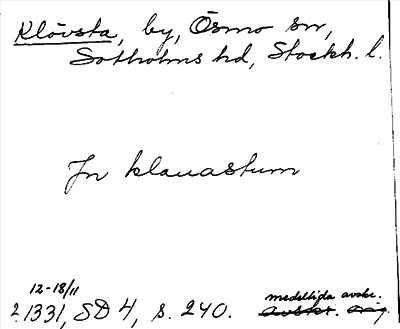 Klövsta, by, Ösmo sn,
Sotholms hd, Stockh. l.
Jn klauastum
12-18/11
2.1331, SD 4, s. 240.
medeltida avskr.
avskr. orig.